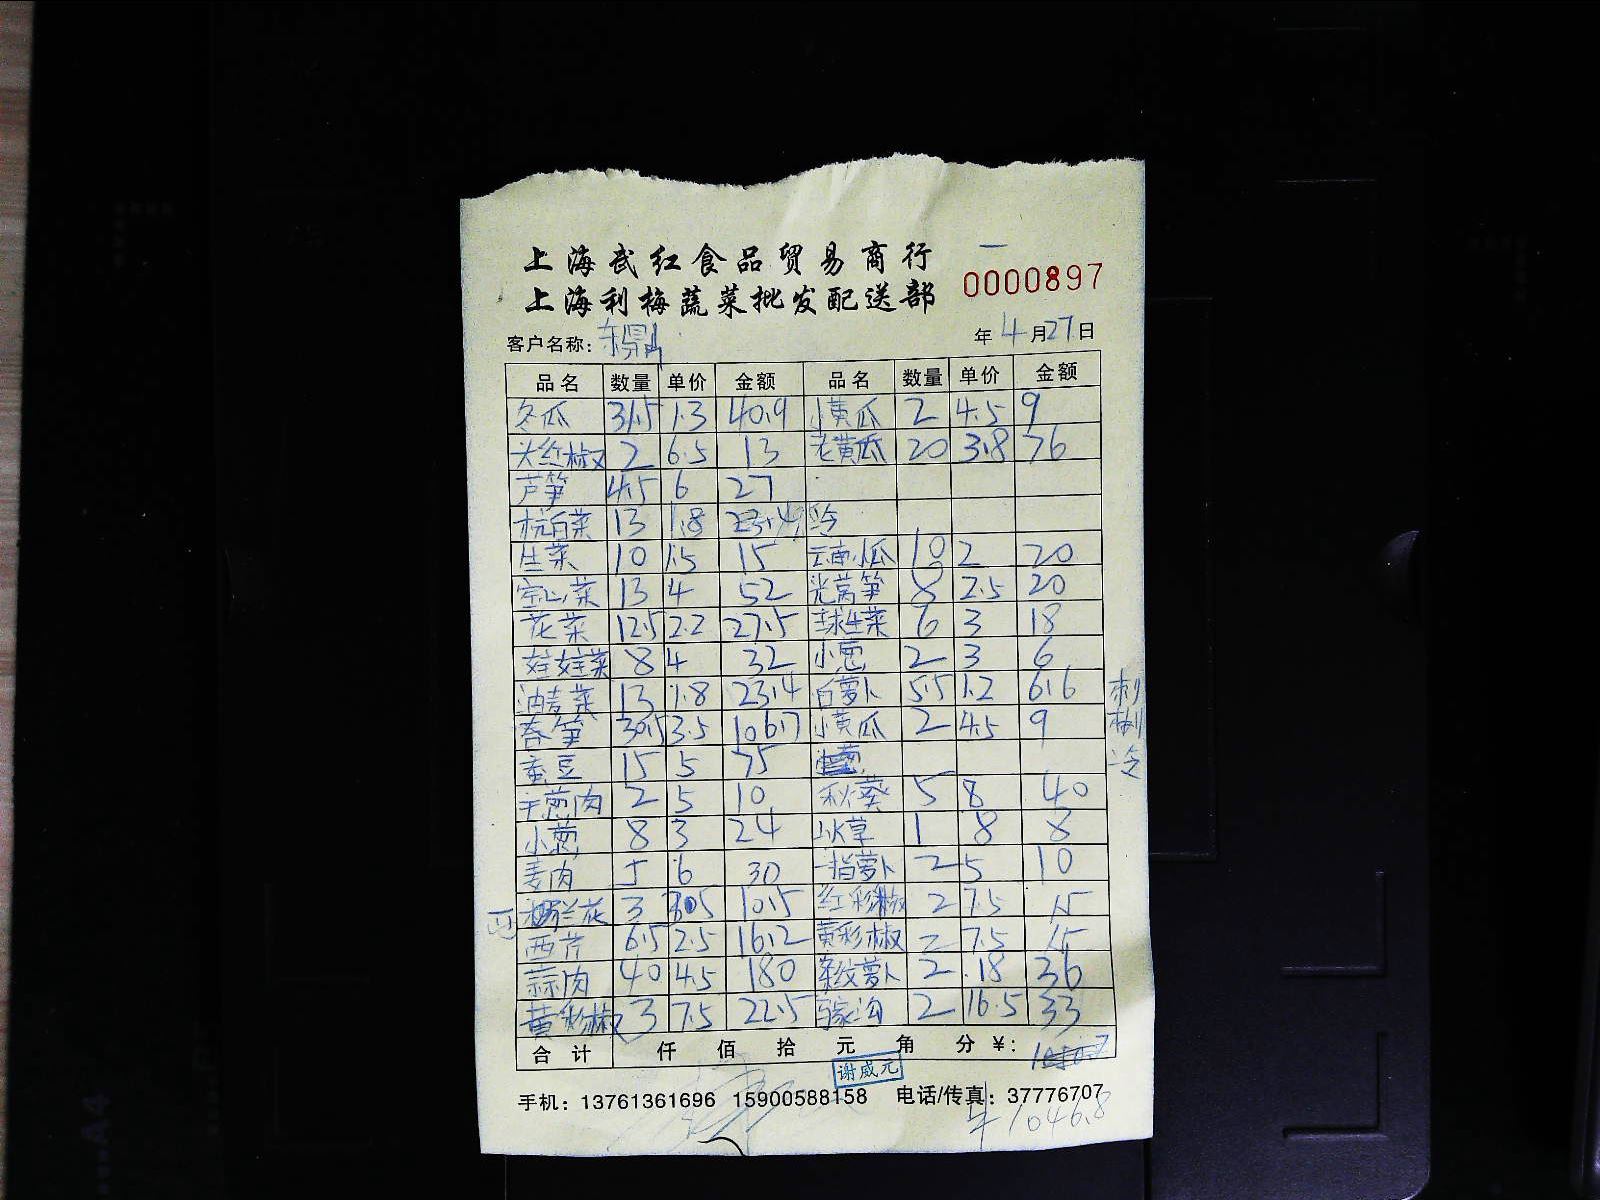 上海武红食品贸易商行
上海利梅蔬菜批发配送部
0000897
客户名称： 年 4 月 27 日
品名 数量 单价 金额 品名 数量 单价 金额
冬瓜 31.5 1.3 40.9 小黄瓜 2 4.5 9
尖红椒 2 6.5 13 老黄瓜 20 3.8 76
芦笋 4.5 6 27
杭白菜 13 1.8 23.4 冷
生菜 10 1.5 15 云南小瓜 10 2 20
空心菜 13 4 52 光莴笋 8 2.5 20
花菜 12.5 2.2 27.5 球生菜 6 3 18
娃娃菜 8 4 32 小葱 2 3 6
油麦菜 13 1.8 23.4 白萝卜 5.5 1.2 6.6
春笋 30.5 3.5 106.7 小黄瓜 2 4.5 9
蚕豆 15 5 75
干葱肉 2 5 10 秋葵 5 8 40
小葱 8 3 24 冰草 1 8 8
姜肉 5 6 30 指萝卜 2 5 10
西兰花 3 3.5 10.5 红彩椒 2 7.5 15
西芹 6.5 2.5 16.2 黄彩椒 2 7.5 15
蒜肉 40 4.5 180 条纹萝卜 2 18 36
黄彩椒 3 7.5 22.5 马家沟 2 16.5 33
合计 仟 佰 拾 元 角 分 ￥：
谢威元
手机：13761361696 15900588158 电话/传真：37776707
1046.8